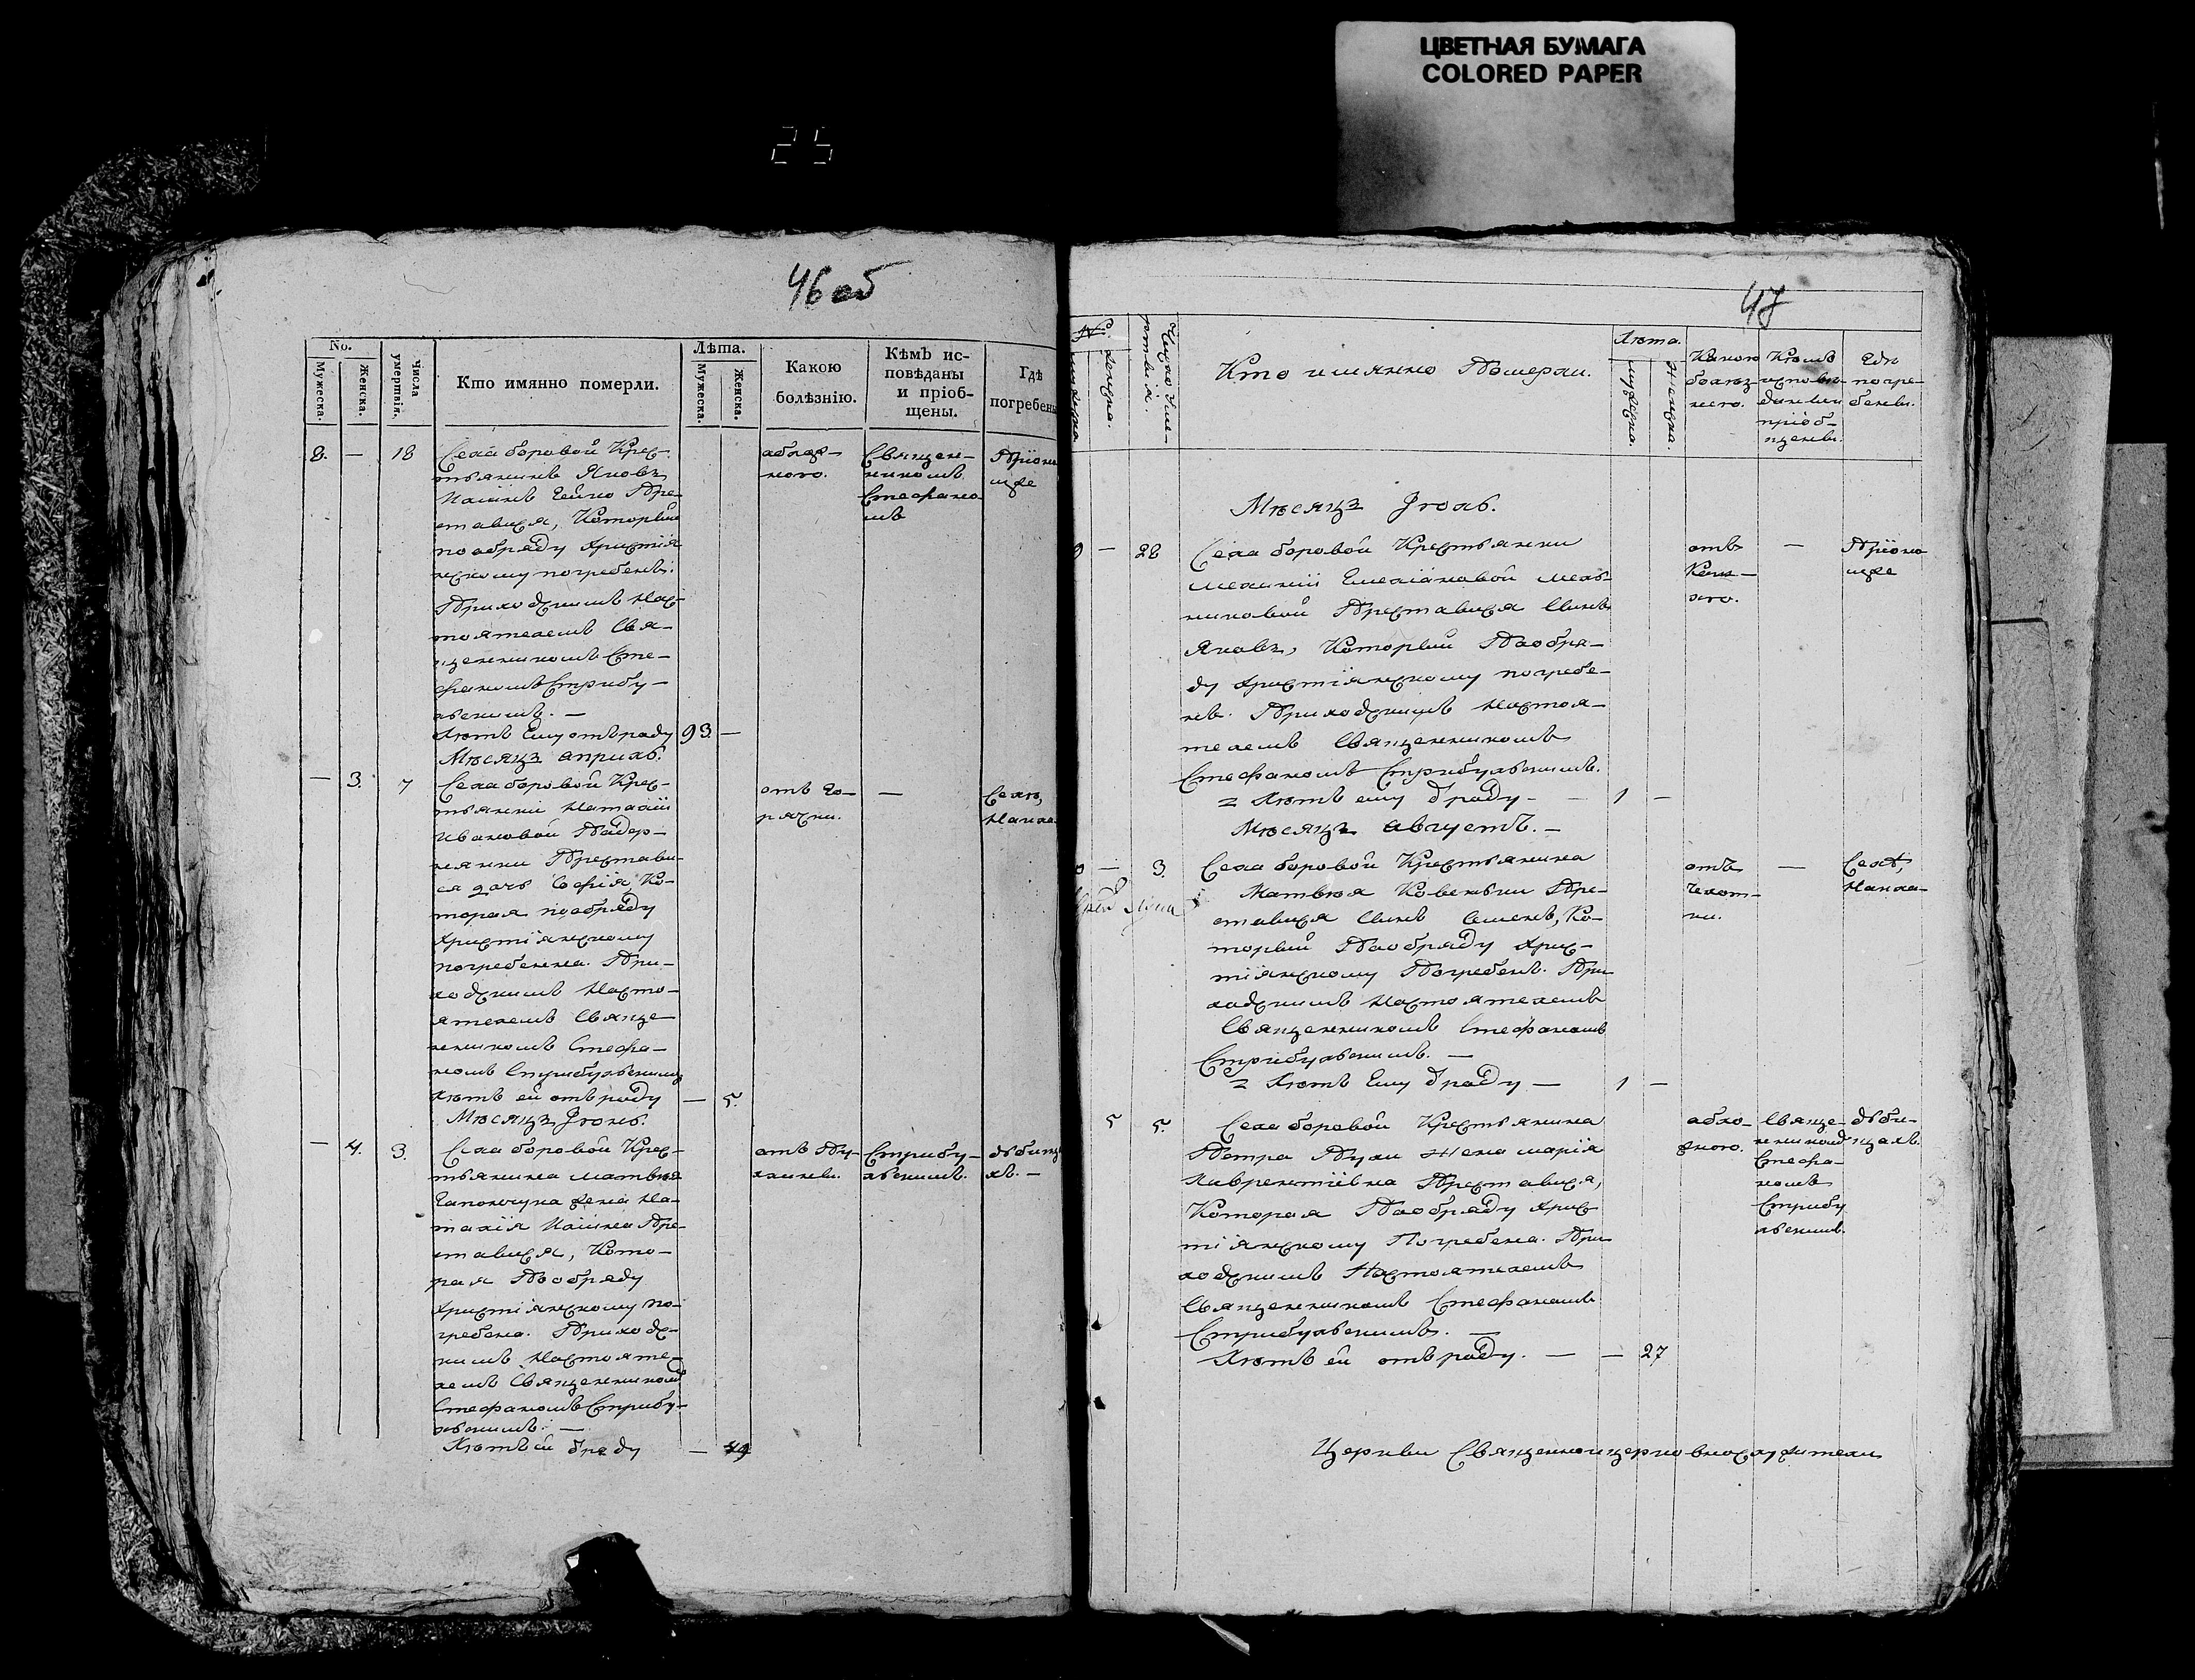 ЦВЕТНАЯ БУМАГА
COLORED PAPER
25
46 об
No.
Мужеска.
Женска.
Числа умертвія.
Кто имянно померли.
Лѣта.
Мужеска.
Женска.
Какою
болѣзнію.
Кѣмъ ис-
повѣданы
и пріоб-
щены.
Гдѣ
погребены
8. — 18
Села боровой Крес-
тьянинъ Яковъ
Пре-
ставися, Который
по обряду христія
нскому погребенъ.
Приходскимъ нас-
тоятелемъ Свя-
щенникомъ Сте-
фаномъ Стрибу-
льскимъ. —
Лѣтъ Ему отъ роду 93. —
Священ-
никомъ
Стефано-
мъ
Мѣсяцъ априль.
— 3. 7
Села боровой Крес-
тьянки Наталіи
Ивановой
Престави-
ся дочь Софія, Ко-
торая по обряду
христіянскому
погребенна. При-
ходскимъ Насто-
ятелемъ Свяще
нникомъ Стефа-
номъ Стрибульскимъ
Лѣтъ ей отъ роду — 5.
отъ Го-
рячки.
—
Мѣсяцъ Іюнь.
— 4. 3.
Села боровой Крес-
тьянина матвѣя
жена На-
талія Пре-
ставися, Кото-
рая По обряду
христіянскому по-
гребена. Приходс-
кимъ Настояте-
лемъ Священникомъ
Стефаномъ Стрибу-
льскимъ. —
Лѣтъ ей б роду — 49
отъ
Стрибу-
льскимъ.
47
No.
мужеска.
женска.
Число уме-
ртвія.
Кто имянно Померли.
Лѣта.
мужеска.
женска.
Какою
болѣз-
нею.
Кѣмъ
исповѣ-
данны
пріоб-
щенны.
Где
погре-
бенны.
Мѣсяцъ Іюль.
9 — 28
Села боровой Крестьянки
Емеліановой мель-
никовой Преставися Сынъ
Яковъ, Который По обря-
ду христіянскому погребе-
нъ. Приходскимъ Настоя-
телемъ Священникомъ
Стефаномъ Стрибульскимъ.
Лѣтъ ему б роду — 1 —
отъ
—
Мѣсяцъ августъ. —
— 3.
Села боровой Крестьянина
Матвѣя Пре-
ставися Сынъ Семенъ, Ко-
торый По обряду хрис-
тіянскому Погребенъ. При
ходскимъ Настоятелемъ
Священникомъ Стефаномъ
Стрибульскимъ. —
Лѣтъ Ему б роду — 1 —
отъ
—
5 5.
Села боровой Крестьянина
Петра жена марія
Лаврентіевна Преставися,
Которая По обряду хрис
тіянскому Погребена. При
ходскимъ Настоятелемъ
Священникомъ Стефаномъ
Стрибульскимъ. —
Лѣтъ ей отъ роду. — — 27
Свяще-
нникомъ
Стефа-
номъ
Стрибу
льскимъ.
Церкви Священноицерковнослужители